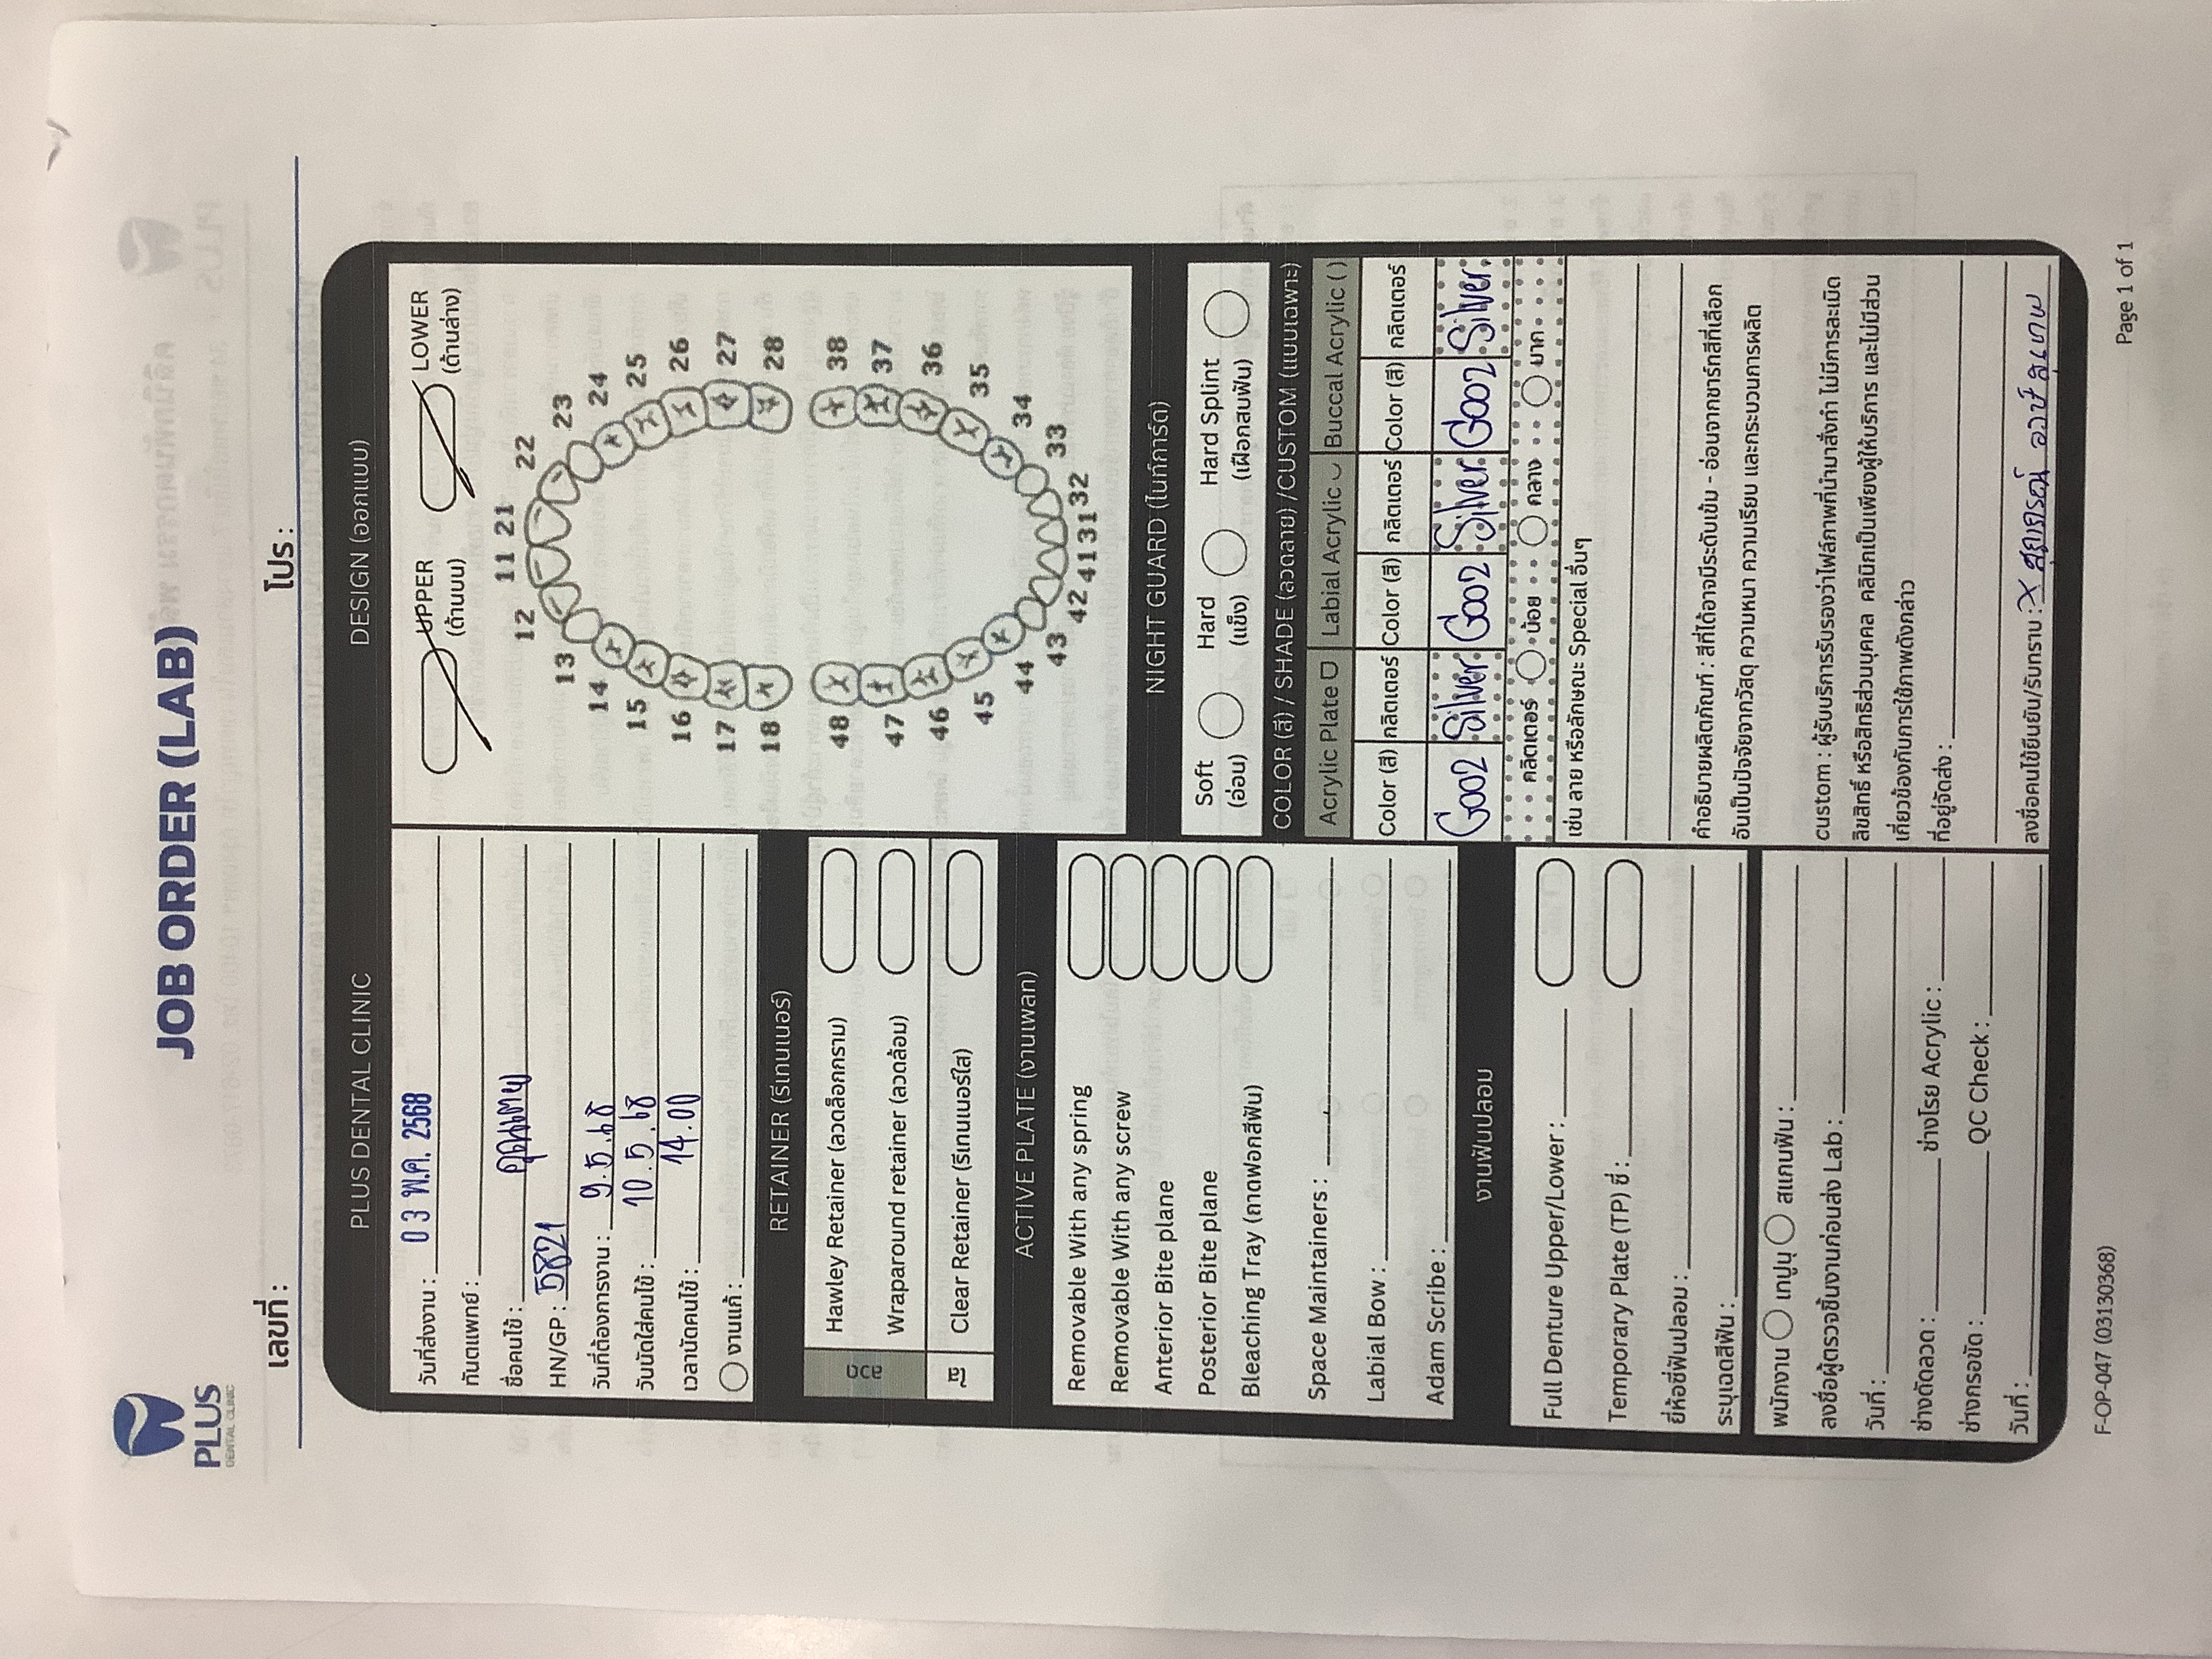 PLUS
DENTAL CLINIC
JOB ORDER (LAB)
เลขที่ :
โปร :
PLUS DENTAL CLINIC
วันที่ส่งงาน : 03 พ.ค. 2568
ทันตแพทย์ :
ชื่อคนไข้ : คุณเตย
HN/GP : 5821
วันที่ต้องการงาน : 9.5.68
วันนัดใส่คนไข้ : 10.5.68
เวลานัดคนไข้ : 14.00
งานแก้ :
RETAINER (รีเทนเนอร์)
ลวด
Hawley Retainer (ลวดล็อกกราม)
Wraparound retainer (ลวดล้อม)
ใส
Clear Retainer (รีเทนเนอร์ใส)
ACTIVE PLATE (งานเพลท)
Removable With any spring
Removable With any screw
Anterior Bite plane
Posterior Bite plane
Bleaching Tray (ถาดฟอกสีฟัน)
Space Maintainers :
Labial Bow :
Adam Scribe :
งานฟันปลอม
Full Denture Upper/Lower :
Temporary Plate (TP) ซี่ :
ยี่ห้อซี่ฟันปลอม :
ระบุเฉดสีฟัน :
พนักงาน เทปูน สแกนฟัน :
ลงชื่อผู้ตรวจชิ้นงานก่อนส่ง Lab :
วันที่ :
ช่างดัดลวด : ช่างโรย Acrylic :
ช่างกรอขัด : QC Check :
วันที่ :
DESIGN (ออกแบบ)
UPPER
(ด้านบน)
LOWER
(ด้านล่าง)
11 21
12 22
13 23
14 24
15 25
16 26
17 27
18 28
48 38
47 37
46 36
45 35
44 34
43 33
42 41 31 32
NIGHT GUARD (ไนท์การ์ด)
Soft
(อ่อน)
Hard
(แข็ง)
Hard Splint
(เฝือกสบฟัน)
COLOR (สี) / SHADE (ลวดลาย) /CUSTOM (แบบเฉพาะ)
Acrylic Plate Labial Acrylic Buccal Acrylic ( )
Color (สี) กลิตเตอร์ Color (สี) กลิตเตอร์ Color (สี) กลิตเตอร์
G002 Silver G002 Silver G002 Silver
กลิตเตอร์ น้อย กลาง มาก
เช่น ลาย หรือลักษณะ Special อื่นๆ
คำอธิบายผลิตภัณฑ์ : สีที่ได้อาจมีระดับเข้ม - อ่อนจากชาร์ทสีที่เลือก
อันเป็นปัจจัยจากวัสดุ ความหนา ความเรียบ และกระบวนการผลิต
custom : ผู้รับบริการรับรองว่าไฟล์ภาพที่นำมาสั่งทำ ไม่มีการละเมิด
ลิขสิทธิ์ หรือสิทธิส่วนบุคคล คลินิกเป็นเพียงผู้ให้บริการ และไม่มีส่วน
เกี่ยวข้องกับการใช้ภาพดังกล่าว
ที่อยู่จัดส่ง :
ลงชื่อคนไข้ยืนยัน/รับทราบ : X สุภาภรณ์
F-OP-047 (03130368)
Page 1 of 1